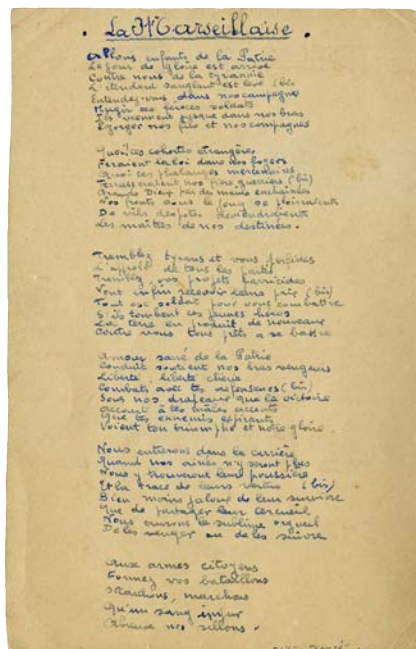 . La Marseillaise .
Allons enfants de la Patrie
Le jour de gloire est arrivé
Contre nous de la tyrannie
L'étendard sanglant est levé (bis
Entendez-vous dans nos campagnes
Mugir ces féroces soldats
Ils viennent jusque dans nos bras
Egorger nos fils et nos compagnes
Quoi! ces cohortes étrangères
Feraient la loi dans nos foyers
Quoi ces phalanges mercenaires
Terrasseraient nos fiers guerriers (bis)
Grands Dieu par des mains enchainées
Nos fronts sous le joug se
De vils despotes deviendraient
Les maîtres de nos destinées.
Tremblez tyrans et vous perfides
L' de tous les partis
Tremblez, vos projets parricides
Vont enfin recevoir leurs prix (bis)
Tout est soldat pour vous combattre
S'ils tombent ces jeunes héros
La terre en produit de nouveaux
Contre vous tous prêts a se battre
Amour sacré de la Patrie
Conduit soutient nos bras vengeurs
Liberté, liberté chérie
Combats avec tes défenseurs (bis)
Sous nos drapeaux que la victoire
accourt à tes mâles accents
Que tes ennemis expirants
Voient ton triomphe et notre gloire.
Nous entrerons dans la carrière
Quand nos ainés n'y seront plus
Nous y trouverons leur poussière
Et la trace de leurs vertus (bis)
Bien moins jaloux de leur survivre
que de partager leur cercueil
Nous aurons le sublime orgueil
De les venger ou de les suivre
Aux armes citoyens
Formez vos bataillons
Marchons, marchons
Qu'un sang impur
Abreuve nos sillons.